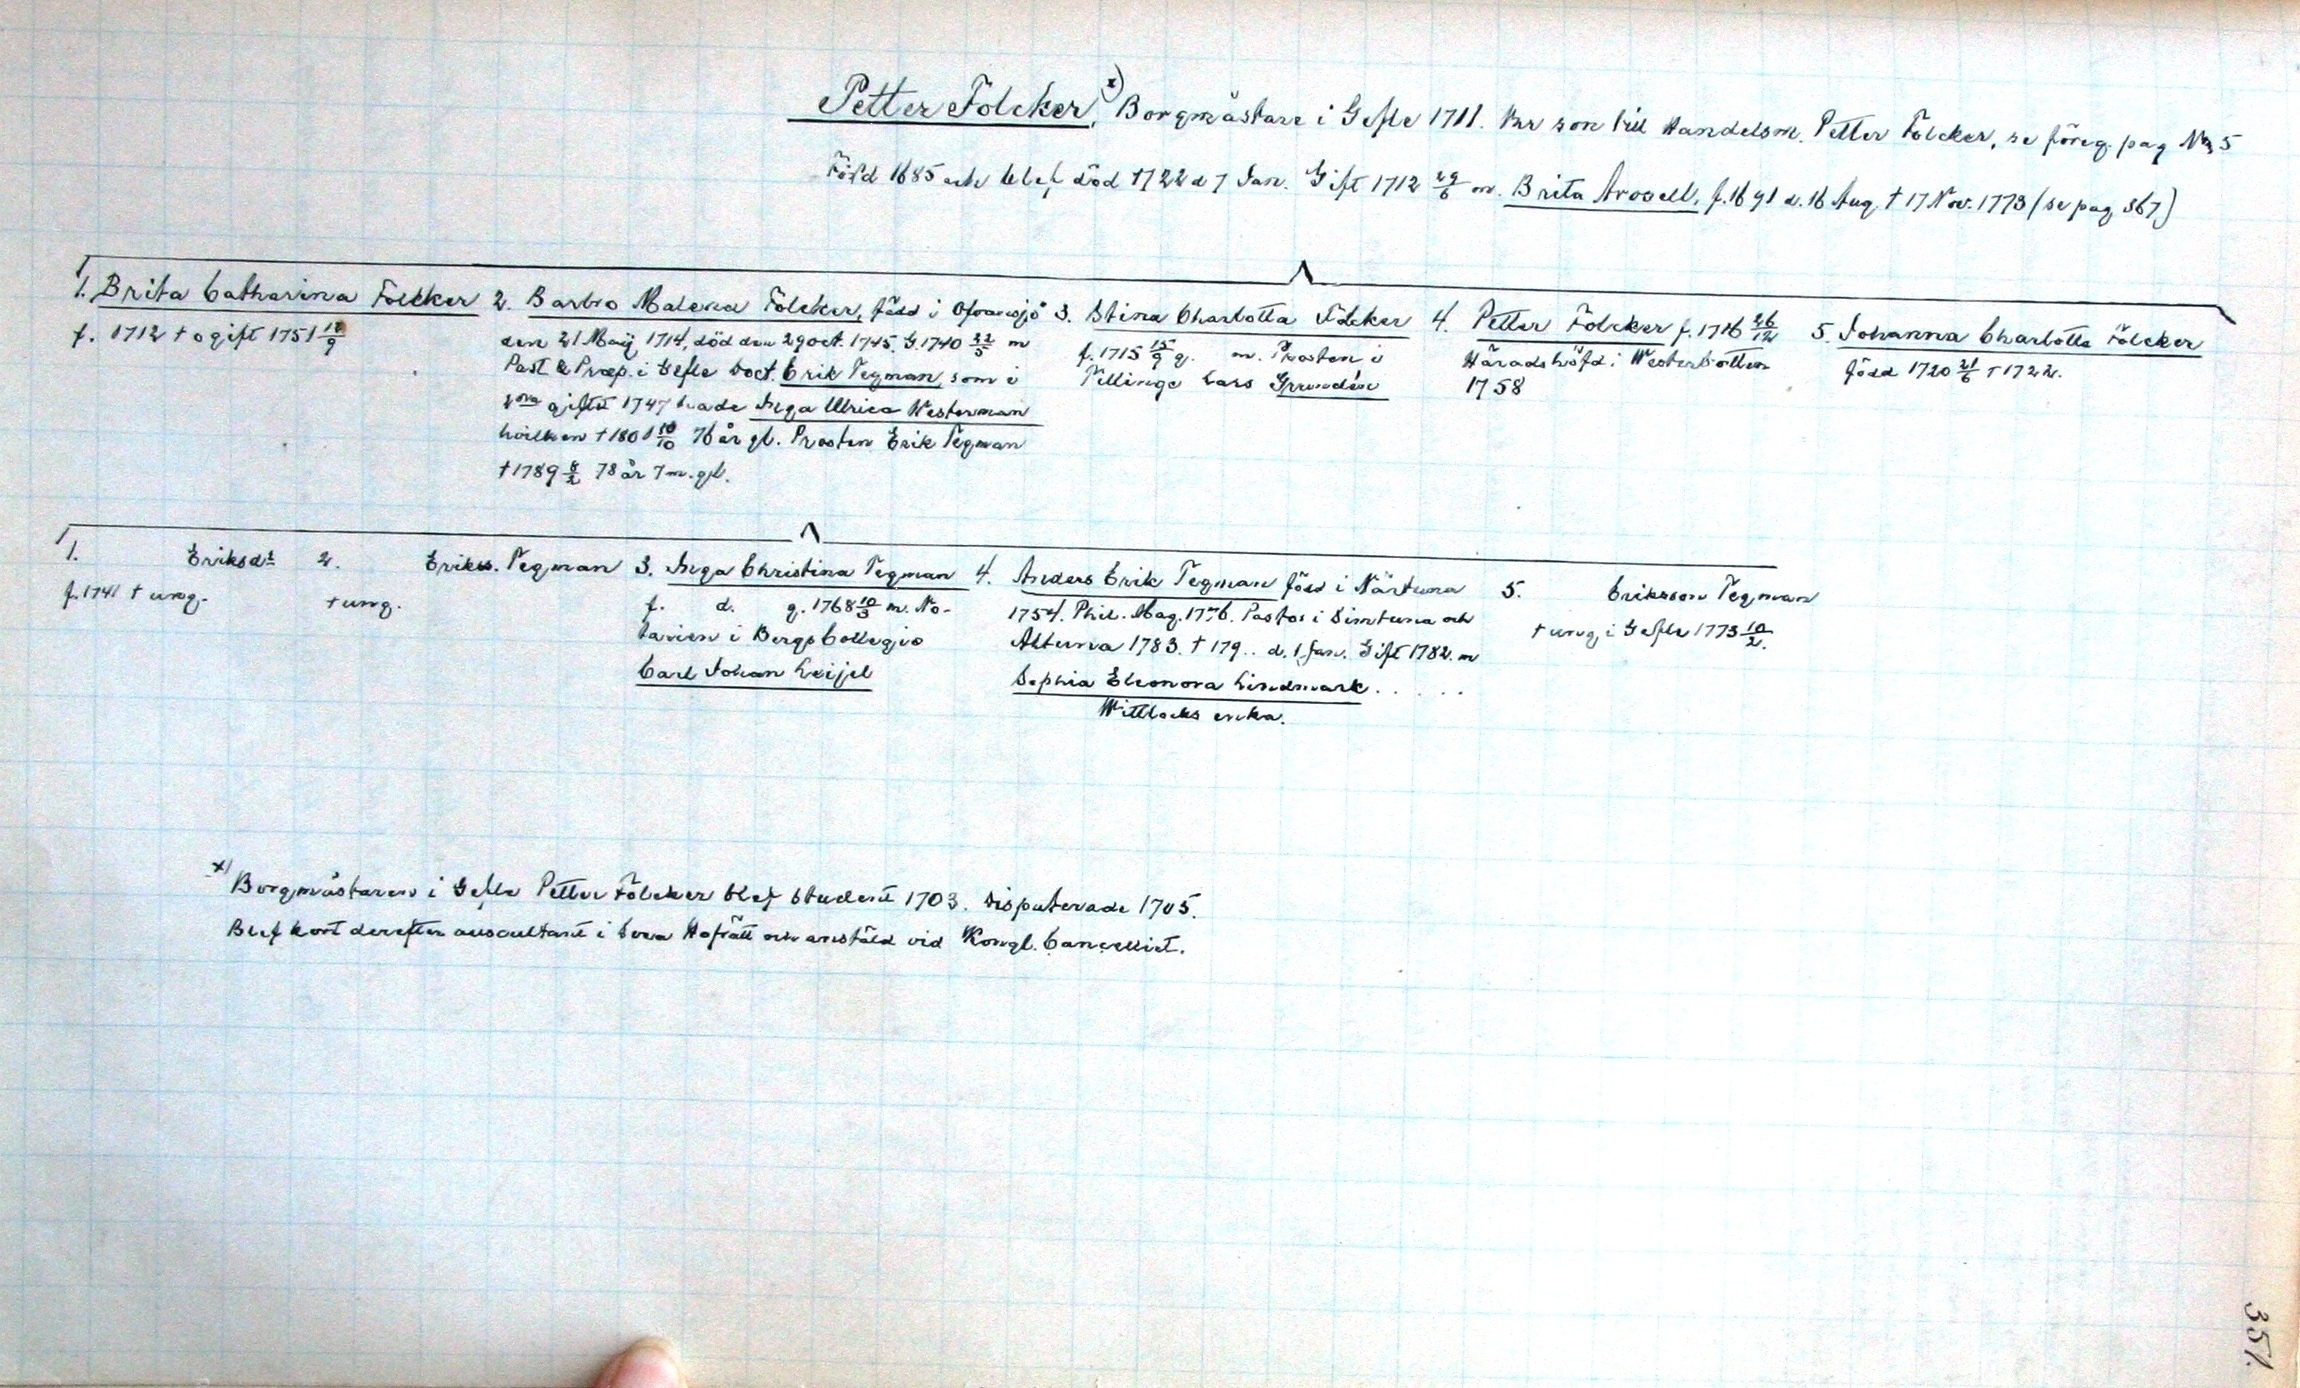 Petter Fölcker, x) Borgmästare i Gefle 1711. Var son till Handelsm. Petter Fölcker, se föreg. pag No 5
Född 1685 och blef död 1722 d 7 Jan. Gift 1712 29/6 m. Brita Arosell, f. 1691 d. 16 Aug. † 17 Nov. 1773 (se pag 367)
1. Brita Catharina Fölcker
f. 1712 † ogift 1751 17/9
2. Barbro Malena Fölcker, född i Ofvansjö
den 21 Maij 1714, död den 29 oct. 1745. G. 1740 22/5 m
Past & Præp. i Gefle Doct. Erik Tegman, som i
2dra giftet 1747 hade Inga Ulrica Westerman
hvilken † 1801 10/10 76 år gl. Prosten Erik Tegman
† 1789 8/2 78 år 7 m. gl.
3. Stina Charlotta Fölcker
f. 1715 15/9 g. m. Prosten i
Tillinge Lars Grundén
4. Petter Fölcker f. 1716 26/12
Häradshöfd. i Westerbotten
1758
5. Johanna Charlotta Fölcker
född 1720 21/6 † 1722.
1. Eriksdt
f. 1741 † ung.
2. Eriks. Tegman
† ung.
3. Inga Christina Tegman
f. d. g. 1768 10/3 m. No-
tarien i Bergs Collegio
Carl Johan Leijel
4. Anders Erik Tegman född i Närtuna
1754. Phil. Mag. 1776. Pastor i Simtuna och
Altuna 1783. † 179.. d. 1 Jan. Gift 1782. m
Sophia Eleonora Lindmark . . . . .
Wittlocks enka.
5. Eriksson Tegman
† ung i Gefle 1773 10/2.
x) Borgmästaren i Gefle Petter Fölcker blef student 1703. Disputerade 1705.
Blef kort derefter auscultant i Svea Hofrätt och anstäld vid Kongl. Cancelliet.
351.